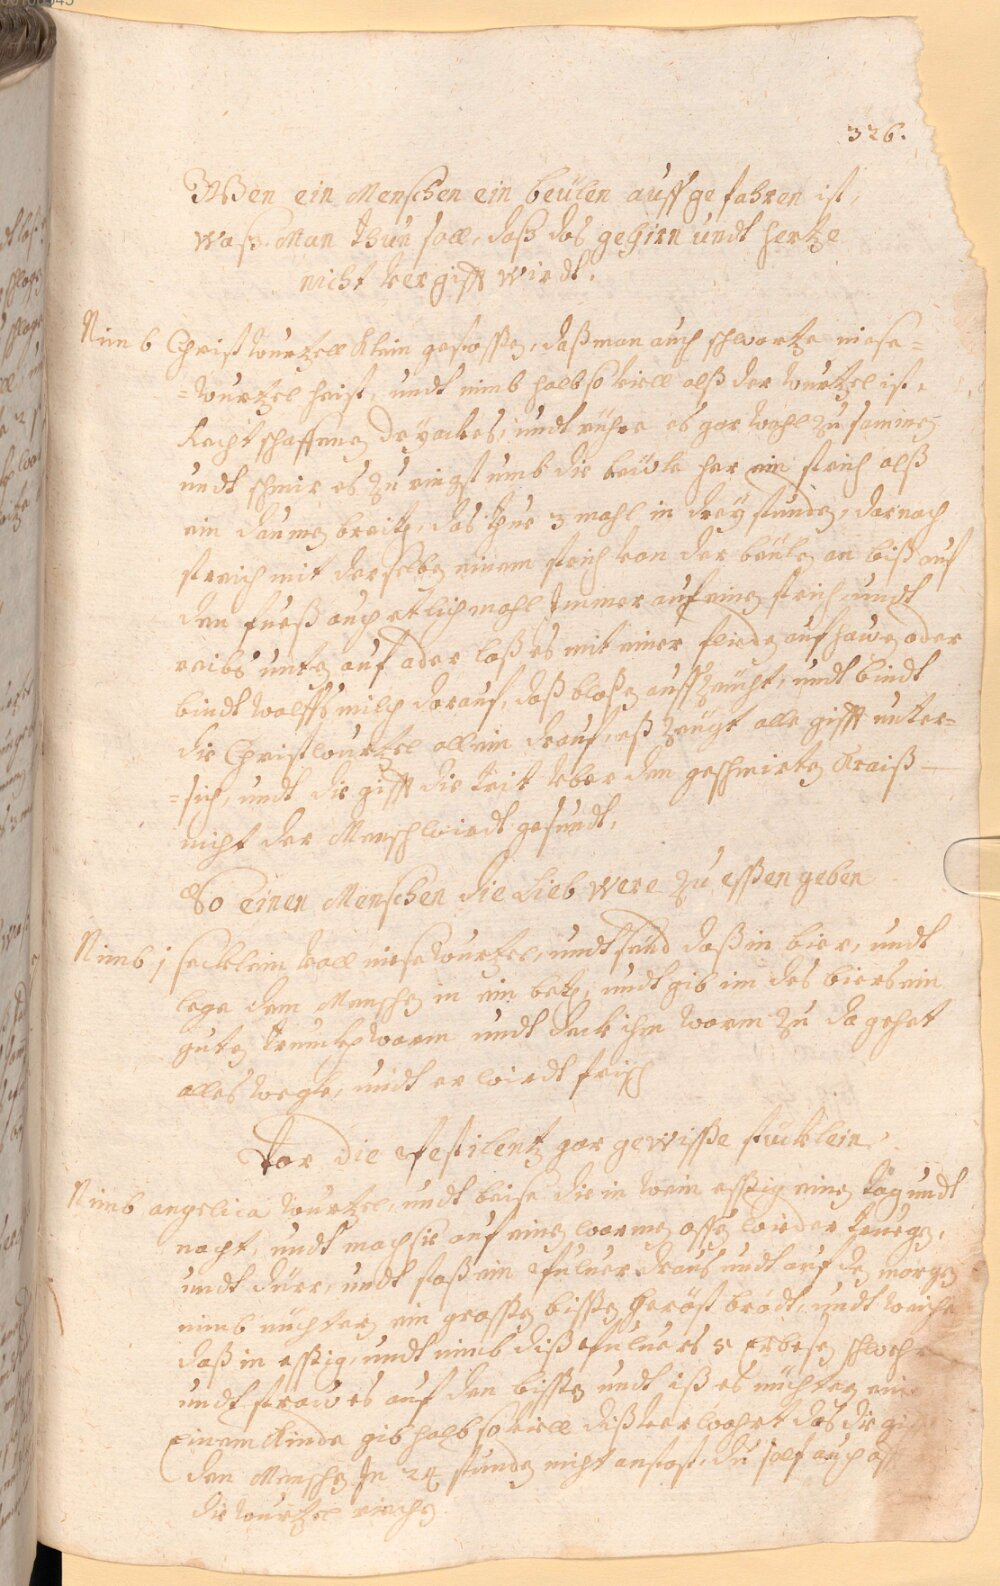 326.
Wen ein Menschen ein beülen auff gefahren ist,
waß Man thun soll, daß das gehirn undt hertze
nicht vergifft wirdt.
Nimb Christwurtzell klein gestossen, daß man auch schwartze niese=
=wurtzel heist, undt nimb halb so viell alß der wurtzel ist,
rechtschaffenen dryackes, undt rühre es gar wohl zusammen
undt schmir es zu ringst umb die beüle her ein strich alß
ein daumen breith, das thue 3 mahl in drey stunden, darnach
streich mit derselben einem strich von der beülen an biß auf
den fueß auch etlichmahl Immer auf einen strich undt
reibs unten auf oder laß es mit einer flieden aufhawen oder
bindt wolffsmilch darauf, daß blasen auffzeücht, undt bindt
die Christwurtzel allein drauf, eß zeügt alle gifft unter=
=sich, undt die gifft die trit über den geschmirten kraiß
nicht der Mensch wirdt gesundt,
So einen Menschen die Lieb were zu essen geben
Nimb 1 secklein voll niesewurtzel, undt sied daß in bier, undt
lege dem Menschen in ein beth, undt gib im des biers ein
guten trunckh warm undt deck ihn warm zu da gehet
alles wegk, undt er wirdt frisch
Vor die Pestilentz gar gewisse stücklein,
Nimb angelica wurtzel, undt beise die in wein essig einen tag undt
nacht, undt mach sie auf einen warmen offen wieder treuge,
undt dürr, undt stoß ein Pulver draus undt auf den morgen
nimb nüchtern ein grossen bissen geröst brodt, undt weiche
daß in essig, undt nimb diß Pulvers 5 Erbesen schwehr
undt strawe es auf den bissen undt iß es nüchtern ein
Einem Kinde gib halb so viell diß verwahrt das die gifft
den Menschen In 24 stunden nicht anstost, du solst auch offt
die wurtzel riechen